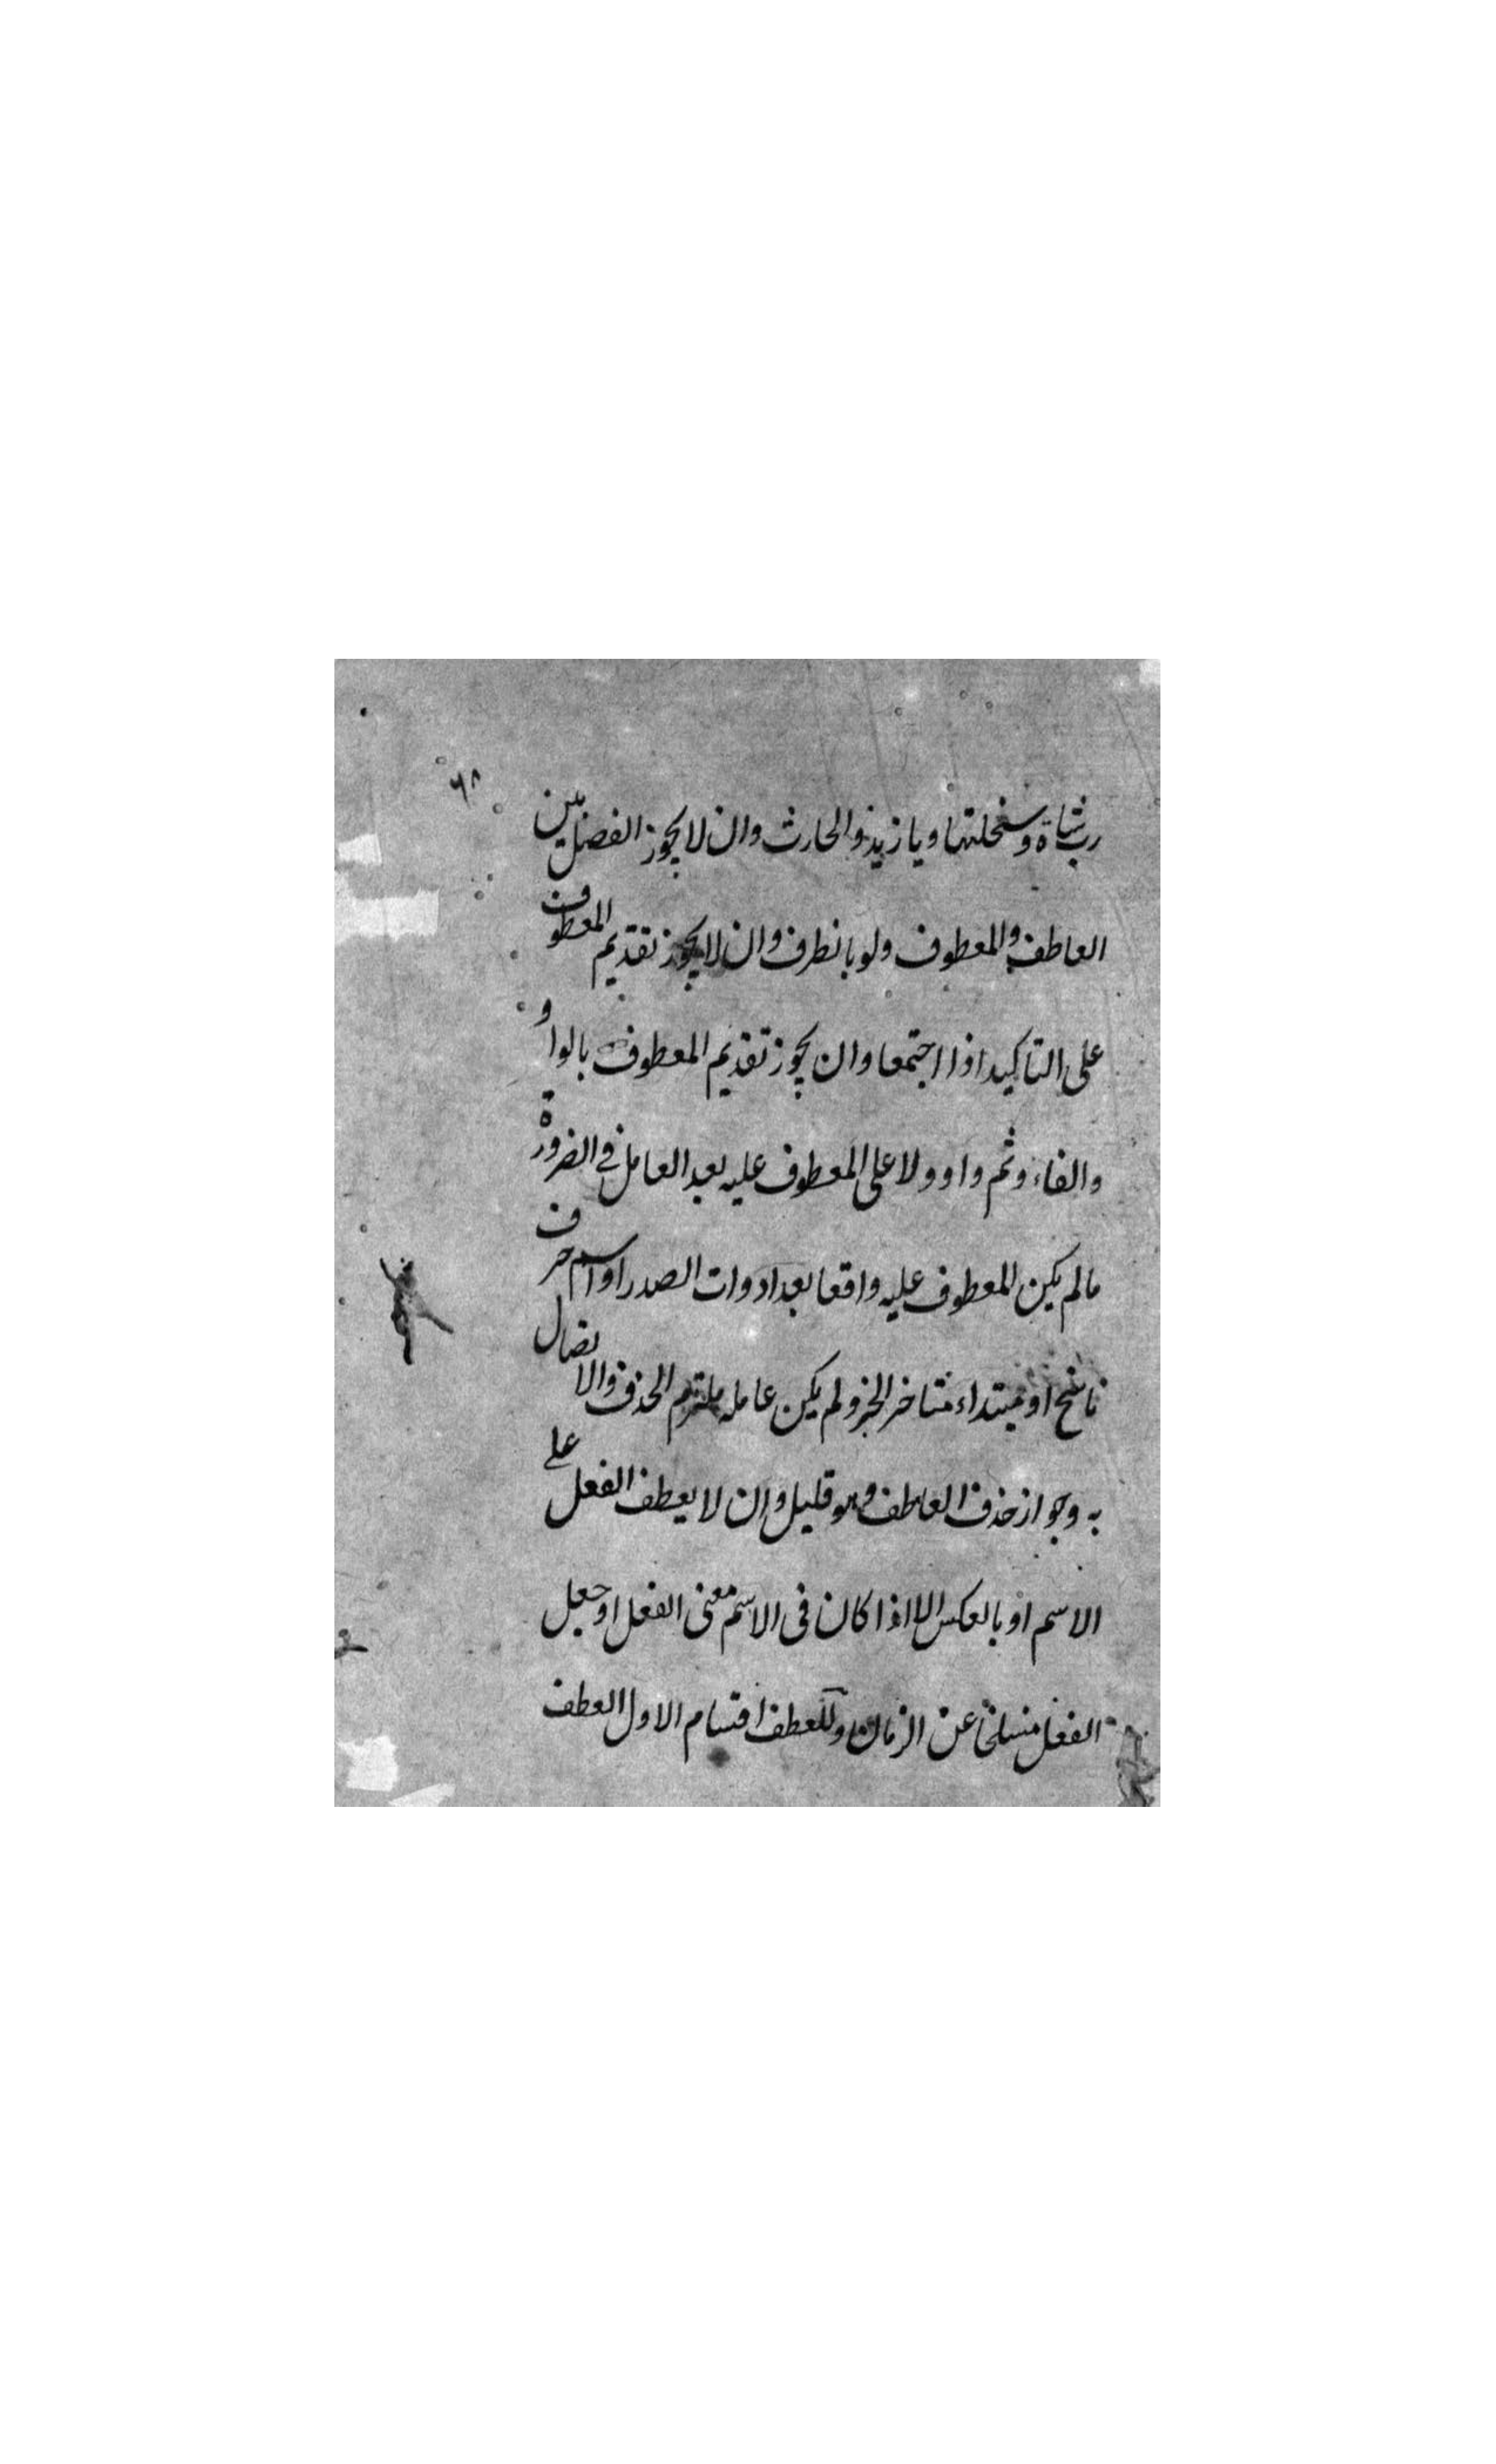 ٦٨
رب شاة وسخلتها ويا زيد والحارث وان لا يجوز الفصل بين
العاطف والمعطوف ولو بالظرف وان لا يجوز تقديم المعطوف
على التاكيد اذا اجتمعا وان يجوز تقديم المعطوف بالواو
والفاء وثم واو ولا على المعطوف عليه بعد العامل في الضرورة
مالم يكن المعطوف عليه واقعا بعد ادوات الصدر او اسم حرف
ناسخ او مبتداء متاخر الخبر ولم يكن عامله ملتزم الحذف والاتصال
به وجواز حذف العاطف وهو قليل وان لا يعطف الفعل على
الاسم او بالعكس الا اذا كان في الاسم معنى الفعل او جعل
الفعل منسلخا عن الزمان وللعطف اقسام الاول العطف